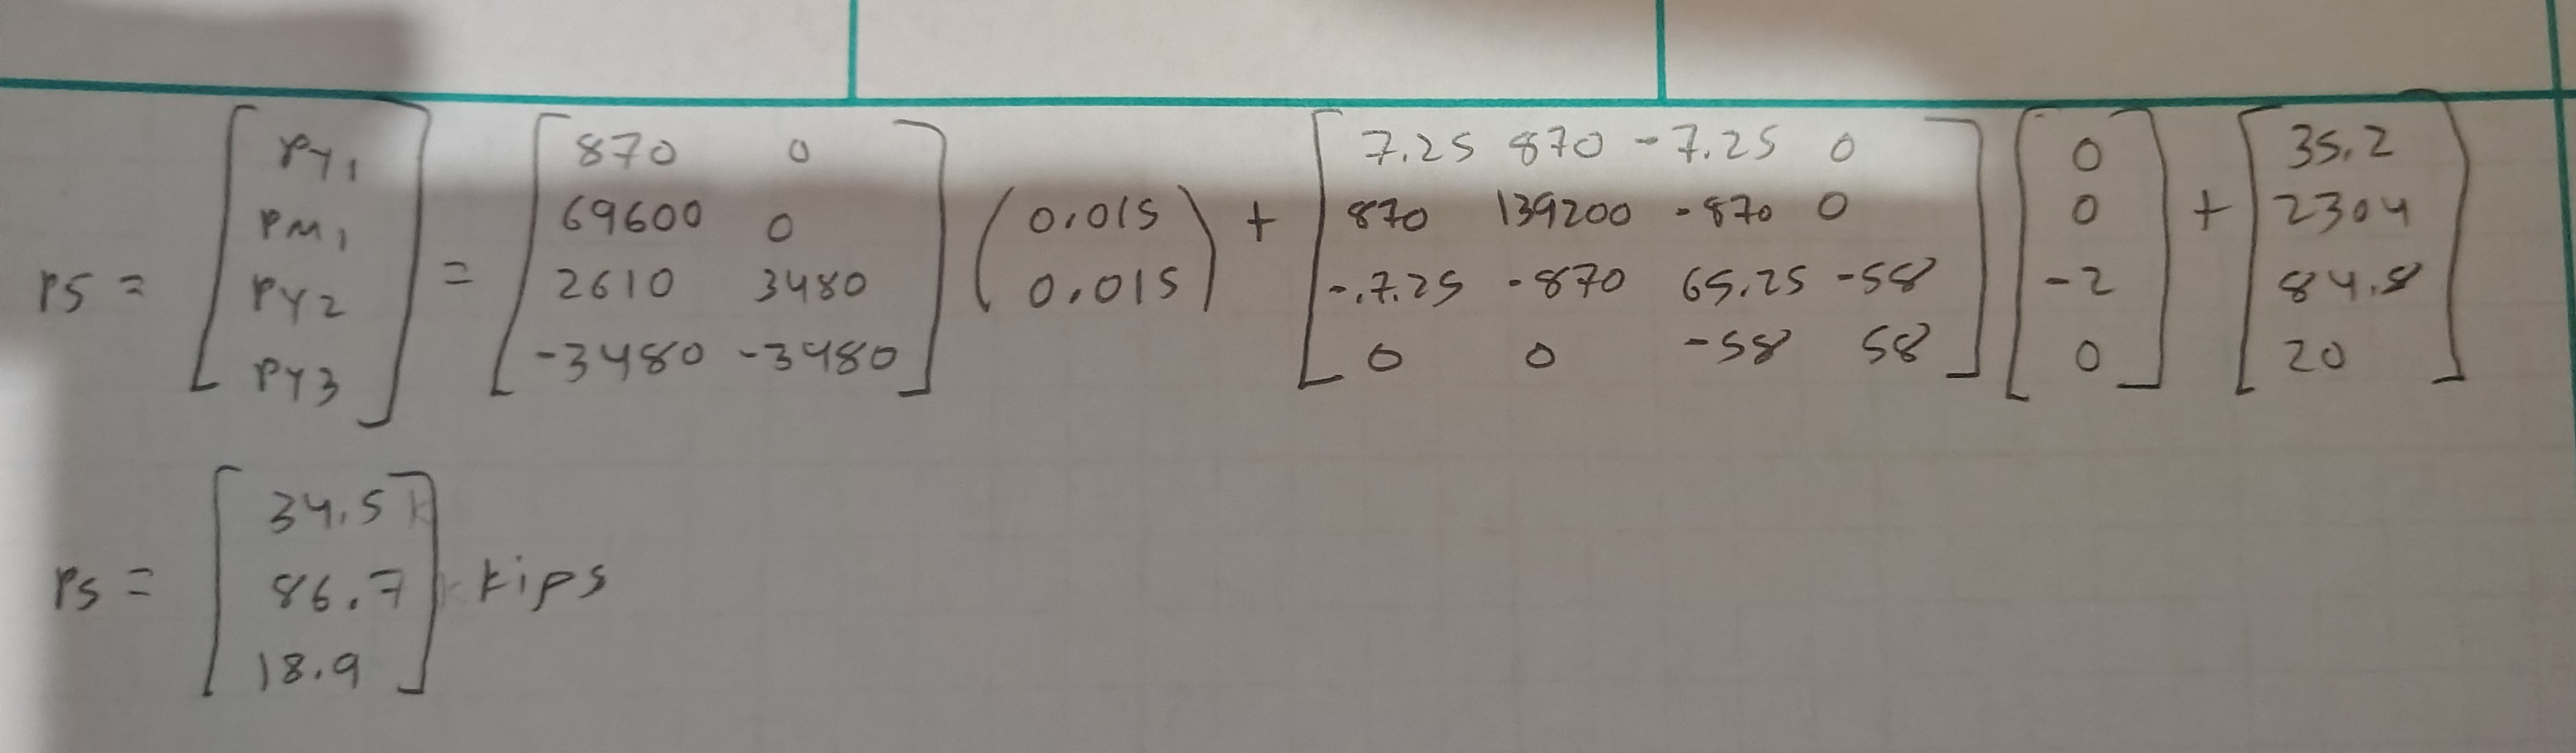 PS = [PY1 PM1 PY2 PY3] = [870 0; 69600 0; 2610 3480; -3480 -3480] (0.015 0.015) + [7.25 870 -7.25 0; 870 139200 -870 0; -.7.25 -870 65.25 -58; 0 0 -58 58] [0 0 -2 0] + [35.2 2304 84.8 20]
PS = [34.5 86.7 18.9] kips